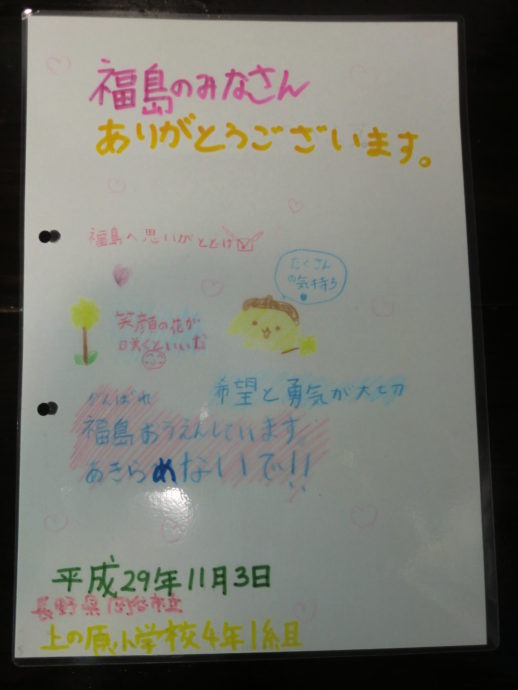 福島のみなさん
ありがとうございます。
福島へ思いがとどけ
たくさん
の気持ち
笑顔の花が
咲くといいな
希望と勇気が大切
がんばれ
福島おうえんしています。
あきらめないで!!
平成29年11月3日
長野県岡谷市立
上の原小学校4年1組